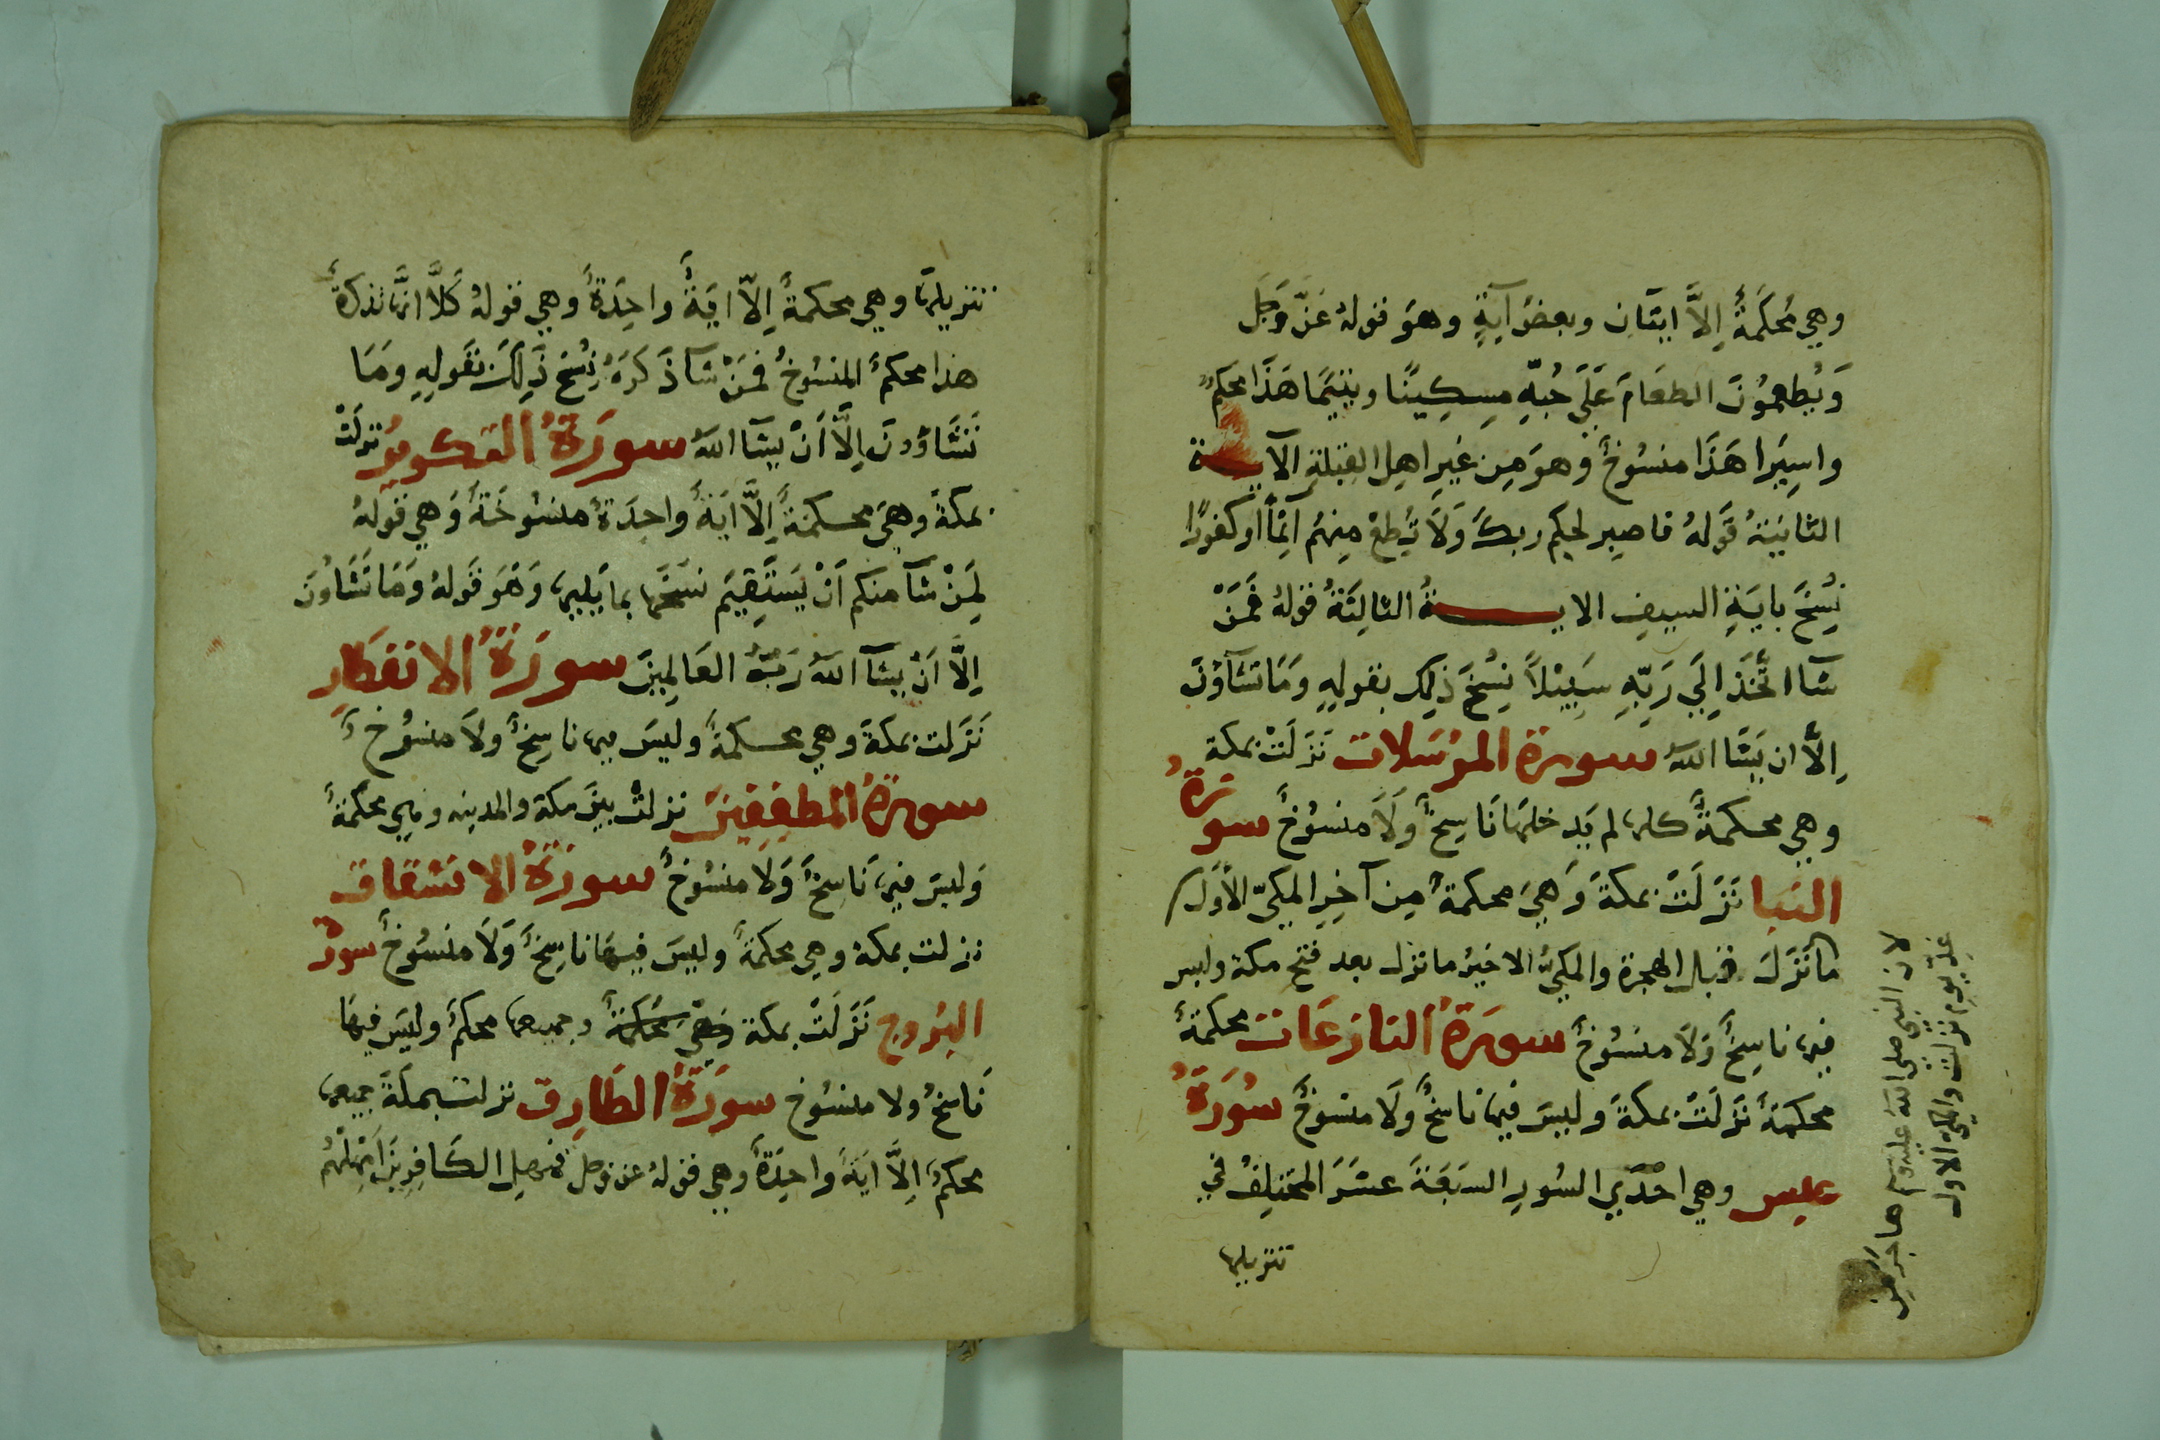 وهي مُحكَمَةٌ إلاَّ ايتَانِ وبعضُ آيَةٍ وهوَ قولهُ عَزَّ وَجَل
وَيُطعمُونَ الطعَامَ عَلَى حُبّهِ مِسكِينًا ويتيمًا هَذَا محكمٌ
واسِيرا هَذا منسُوخٌ وهوَ مِن غيرِ اهلِ القبلةِ الآيـة
الثانيَةُ قَولهُ فاصبِر لحكم ربكَ وَلَا تُطعْ مِنهُم آثِماً أو كفورًا
نُسِخَ بايَةِ السيفِ الايـــةُ الثالِثَةُ قولهُ فَمَنْ
شآا اتَّخَذَ إلَي رَبِّهِ سَبِيْلاً نُسِخَ ذلِكَ بقولِهِ وَمَا تشآؤنَ
إلاَّ ان يَشَا اللهُ سورة المرسَلات نَزَلَتْ بمكة
وهي محكمةٌ كلها لم يَدخلهَا نَاسِخٌ وَلَا منسُوخٌ سورَةُ
النبا نَزَلَتْ بمكةَ وَهيَ محكمةٌ مِن آخِرِ المكيّ الأوّل
ما نَزَلَ قبل الهجرة والمكيُّ الاخيرُ ما نزل بعد فتحِ مكة وليس
فيها ناسِخٌ وَلَا منسُوخٌ سورَةُ النازعَات محكمةٌ
محكمَةٌ نَزَلَتْ بمكةَ وليسَ فيها ناسخٌ ولَا منسوخٌ سُورَةُ
عبس وهي احْدَي السُورِ السَبعَةَ عشَرَ المختلِفُ في
تنزيلها
لان النبي صلى الله عليه وسلم هاجر من
غد يوم نزلت والمكي الاول
تنزيلها وهي محكمةٌ إلاّ ايةً واحِدَةً وهي قولهُ كَلاَّ انهَا تذكرةٌ
هذا محكمٌ المنسُوخُ فمَنْ شآ ذَكَرَهُ نُسِخَ ذَلِكَ بقَولِهِ ومَا
تَشَاؤُونَ إلَّا أَنْ يشآ اللهُ سورَةُ التكوير نزلَتْ
بمكةَ وهيَ محكمَةٌ إلَّا ايَةً واحِدَةً منسُوخَةً وَهي قولهُ
لِمَنْ شآ منكم اَنْ يَسْتَقِيمَ نسَخَهَا بما يَليهَا وَهْوَ قَولهُ وَمَا تَشَاؤُنَ
إلَّا اَنْ يشآ اللهُ رَبُّ العَالمِينَ سورَةُ الانفطَارِ
نَزَلت بمكةَ وهي محكمةٌ وليسَ فيها ناسِخٌ ولاَ منسُوخٌ
سورةُ المطفِفِينَ نزلتْ بينَ مكة والمدينه وهي محكمَةٌ
وَليسَ فيهَا نَاسِخٌ وَلا منسُوخٌ سورَةُ الانشقاق
نزلت بمكة وهي محكمَةٌ وليسَ فيهَا ناسِخٌ وَلَا منسُوخٌ سورة
البُروج نَزَلَتْ بمكة وهيَ مُحكمَةٌ وجميعها محكمٌ وليسَ فيهَا
نَاسِخٌ ولا منسُوخ سورَةُ الطَارِق نزلت بمكةَ جميعها
محكمٌ إلاَّ ايَةً واحِدَةً وهي قولهُ عز وجل فمهل الكَافِرِينَ أمْهِلْهُم